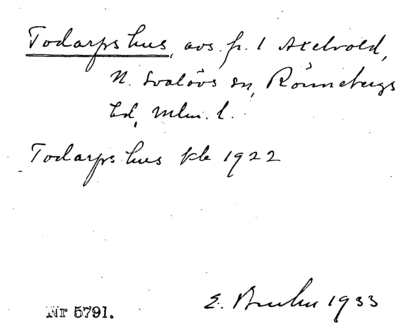 Todarpshus, avs. fr. 1 Axelvold,
N. Svalövs sn, Rönnebergs
hd, Mlm. l.
Todarpshus kb 1922
E. Bruhn 1933
Nr 5791.